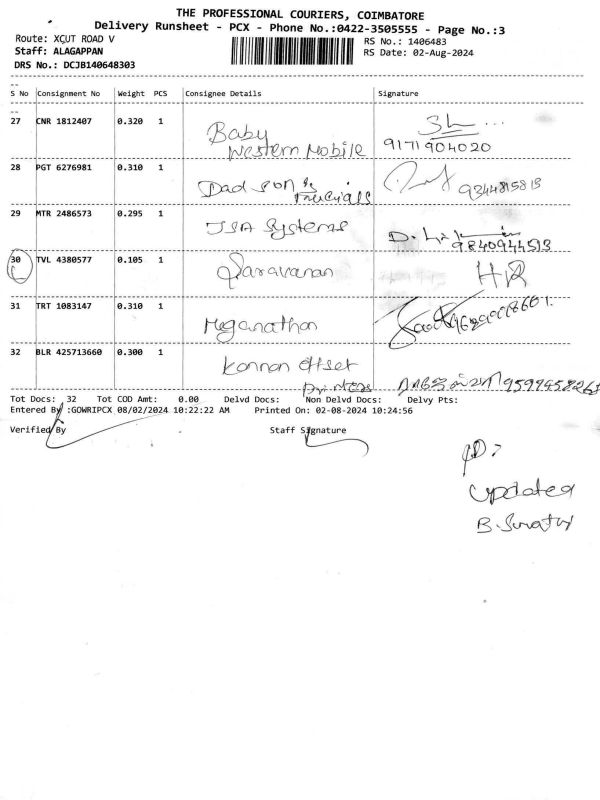 THE PROFESSIONAL COURIERS, COIMBATORE
Delivery Runsheet - PCX - Phone No.:0422-3505555 - Page No.:3
Route: XCUT ROAD V RS No.: 1406483
Staff: ALAGAPPAN RS Date: 02-Aug-2024
DRS No.: DCJB140648303
S No Consignment No Weight PCS Consignee Details Signature
27 CNR 1812407 0.320 1 Baby
Western Mobile 9171904020
28 PGT 6276981 0.310 1 Dad son's
9344815813
29 MTR 2486573 0.295 1 JSA Systems
9840944513
30 TVL 4380577 0.105 1 Saravanan HR
31 TRT 1083147 0.310 1 Meganathan
32 BLR 425713660 0.300 1 Konnan offset
Printers
Tot Docs: 32 Tot COD Amt: 0.00 Delvd Docs: Non Delvd Docs: Delvy Pts:
Entered By :GOWRIPCX 08/02/2024 10:22:22 AM Printed On: 02-08-2024 10:24:56
Verified By Staff Signature
Updated